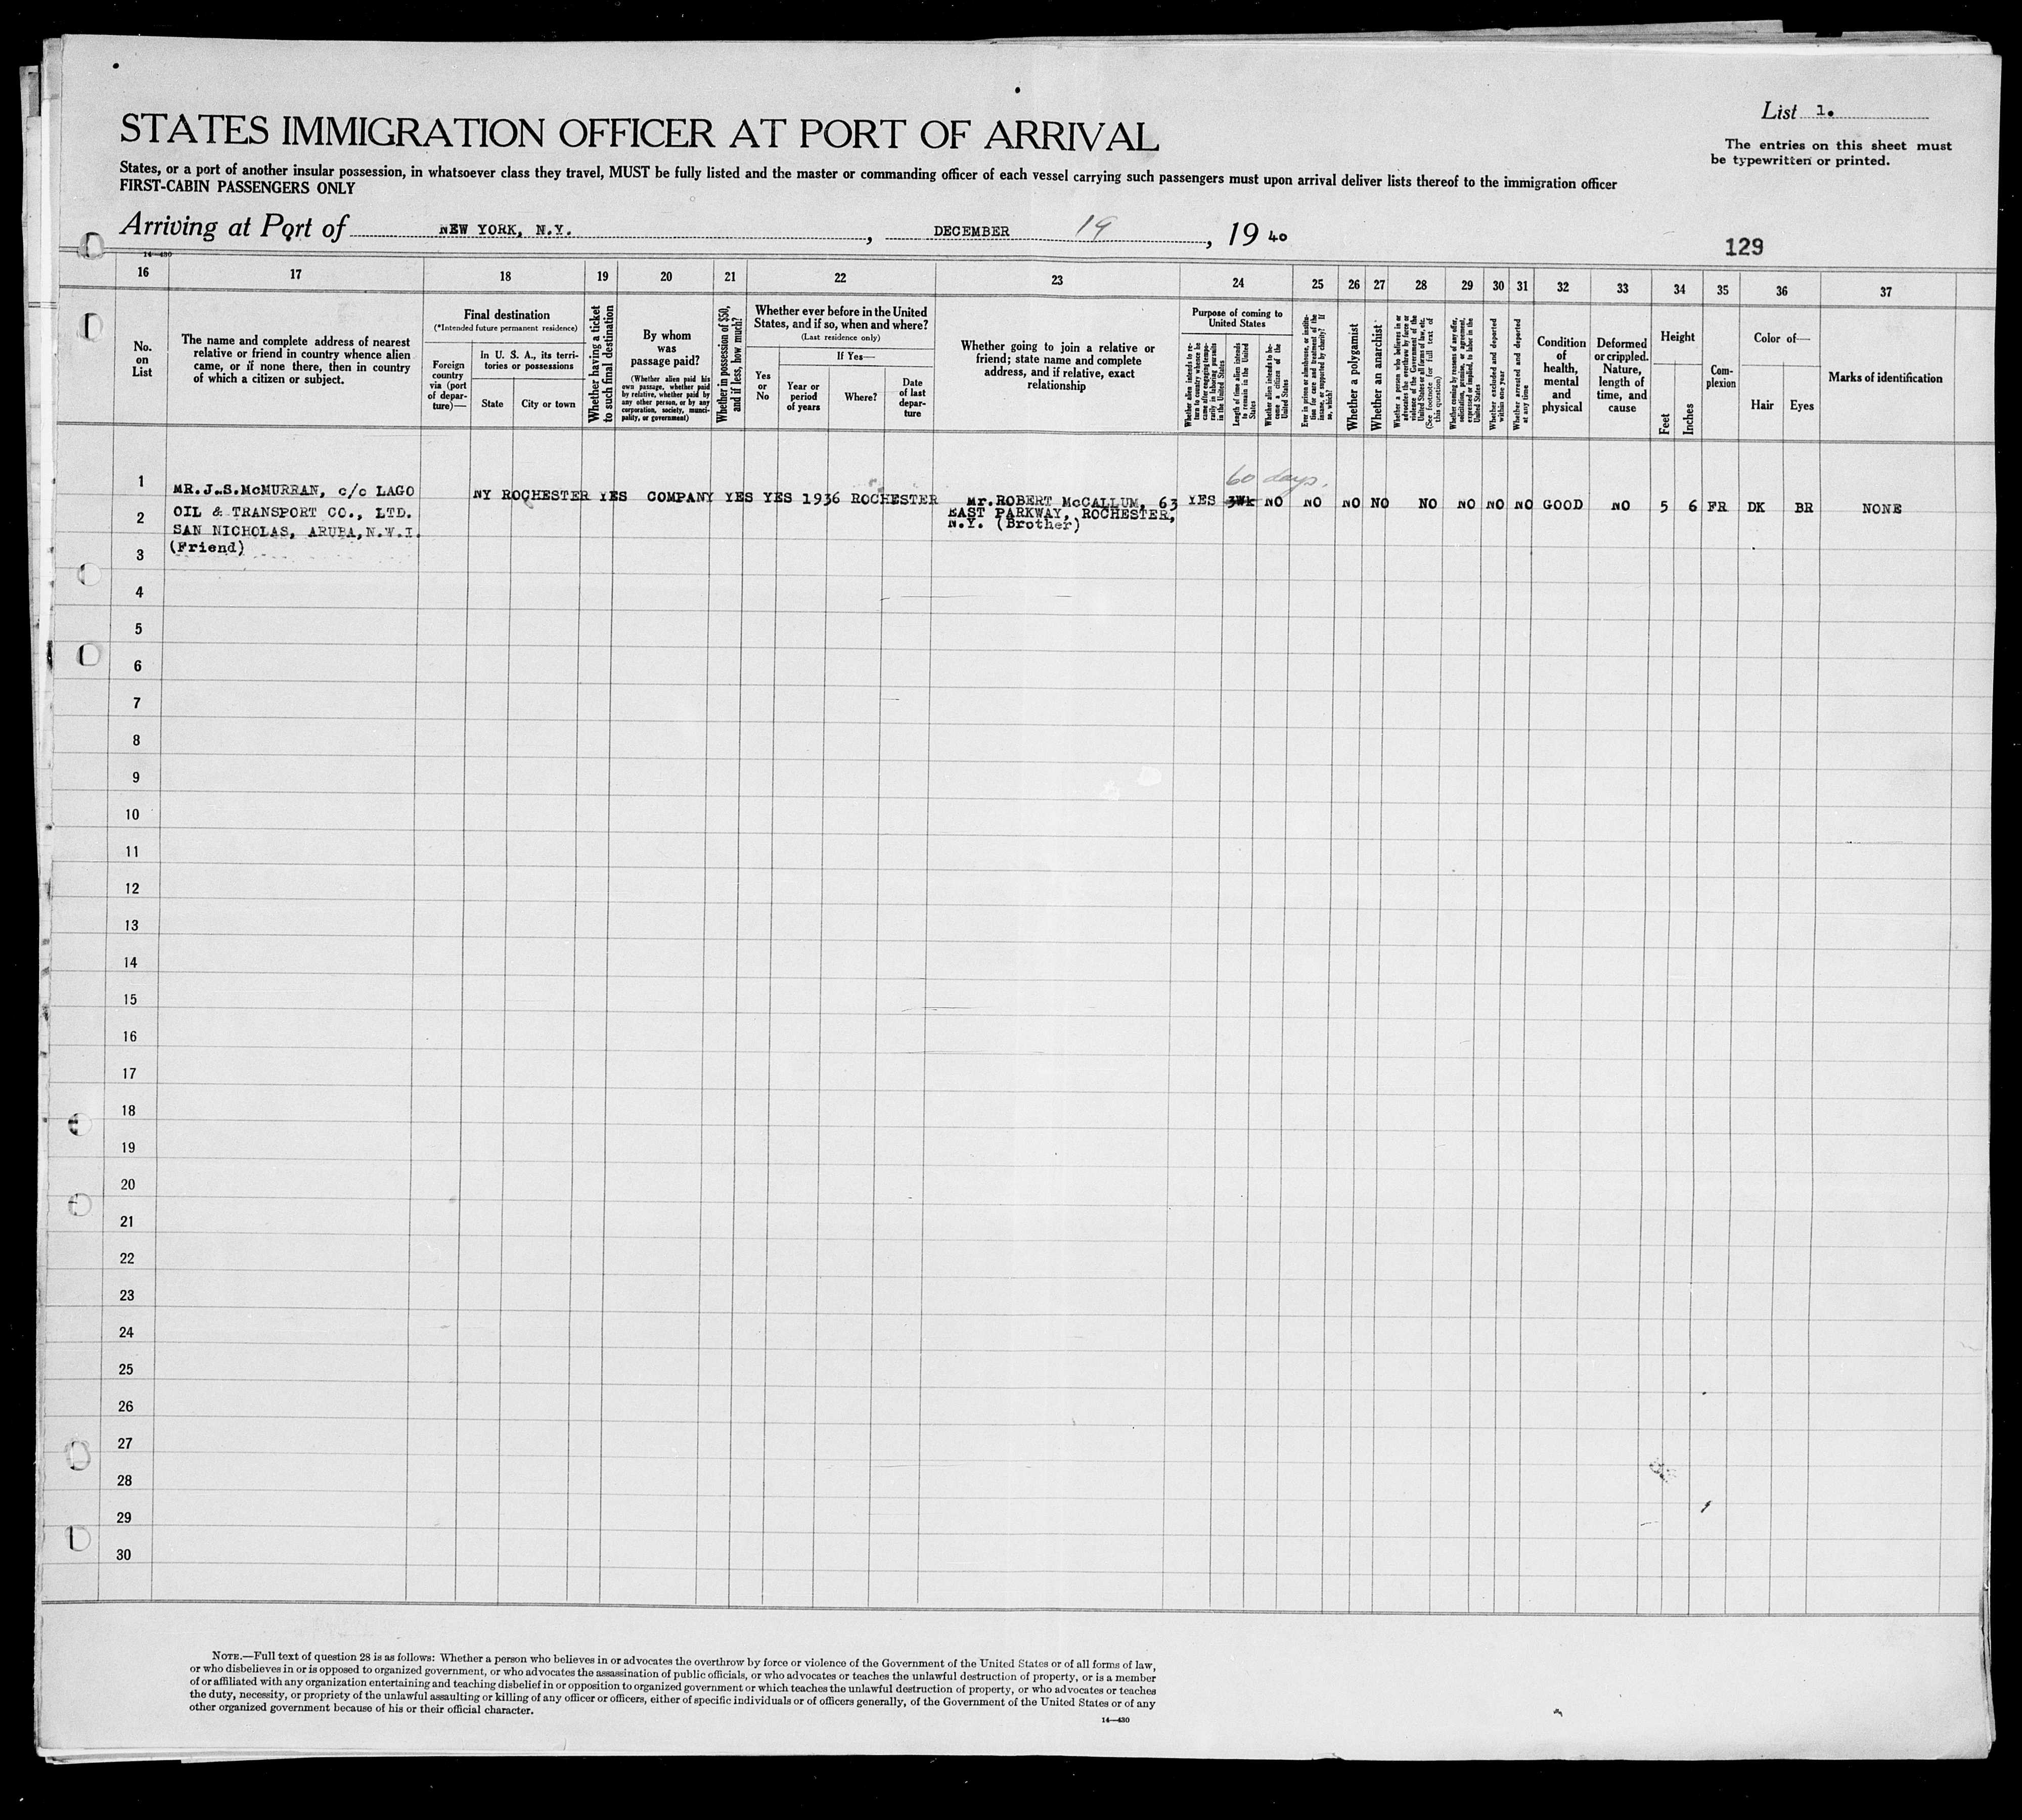 List 1.
The entries on this sheet must
be typewritten or printed.
STATES IMMIGRATION OFFICER AT PORT OF ARRIVAL
States, or a port of another insular possession, in whatsoever class they travel, MUST be fully listed and the master or commanding officer of each vessel carrying such passengers must upon arrival deliver lists thereof to the immigration officer
FIRST-CABIN PASSENGERS ONLY
Arriving at Port of NEW YORK, N.Y., DECEMBER 19, 1940
129
14—430
16 17 18 19 20 21 22 23 24 25 26 27 28 29 30 31 32 33 34 35 36 37
No.
on
List
The name and complete address of nearest
relative or friend in country whence alien
came, or if none there, then in country
of which a citizen or subject.
Final destination
(*Intended future permanent residence)
Foreign
country
via (port
of depar-
ture)—
In U. S. A., its terri-
tories or possessions
State
City or town
Whether having a ticket
to such final destination
By whom
was
passage paid?
(Whether alien paid his
own passage, whether paid
by relative, whether paid by
any other person, or by any
corporation, society, munici-
pality, or government)
Whether in possession of $50,
and if less, how much?
Whether ever before in the United
States, and if so, when and where?
(Last residence only)
Yes
or
No
If Yes—
Year or
period
of years
Where?
Date
of last
depar-
ture
Whether going to join a relative or
friend; state name and complete
address, and if relative, exact
relationship
Purpose of coming to
United States
Whether alien intends to re-
turn to country whence he
came after engaging tempo-
rarily in laboring pursuits
in the United States
Length of time alien intends
to remain in the United
States
Whether alien intends to be-
come a citizen of the
United States
Ever in prison or almshouse, or institu-
tion for care and treatment of the
insane, or supported by charity? If
so, which?
Whether a polygamist
Whether an anarchist
Whether a person who believes in or
advocates the overthrow by force or
violence of the Government of the
United States or all forms of law, etc.
(See footnote for full text of
this question)
Whether coming by reason of any offer,
solicitation, promise, or agreement,
expressed or implied, to labor in the
United States
Whether excluded and deported
within one year
Whether arrested and deported
at any time
Condition
of
health,
mental
and
physical
Deformed
or crippled.
Nature,
length of
time, and
cause
Height
Feet
Inches
Com-
plexion
Color of—
Hair
Eyes
Marks of identification
60 days.
1 MR.J.S.McMURRAN, c/o LAGO NY ROCHESTER YES COMPANY YES YES 1936 ROCHESTER Mr.ROBERT McCALLUM, 63 YES 3Wk NO NO NO NO NO NO NO NO GOOD NO 5 6 FR DK BR NONE
2 OIL & TRANSPORT CO., LTD. EAST PARKWAY, ROCHESTER,
SAN NICHOLAS, ARUBA,N.W.I. N.Y. (Brother)
3 (Friend)
4
5
6
7
8
9
10
11
12
13
14
15
16
17
18
19
20
21
22
23
24
25
26
27
28
29
30
NOTE.—Full text of question 28 is as follows: Whether a person who believes in or advocates the overthrow by force or violence of the Government of the United States or of all forms of law,
or who disbelieves in or is opposed to organized government, or who advocates the assassination of public officials, or who advocates or teaches the unlawful destruction of property, or is a member
of or affiliated with any organization entertaining and teaching disbelief in or opposition to organized government or which teaches the unlawful destruction of property, or who advocates or teaches
the duty, necessity, or propriety of the unlawful assaulting or killing of any officer or officers, either of specific individuals or of officers generally, of the Government of the United States or of any
other organized government because of his or their official character.
14—430